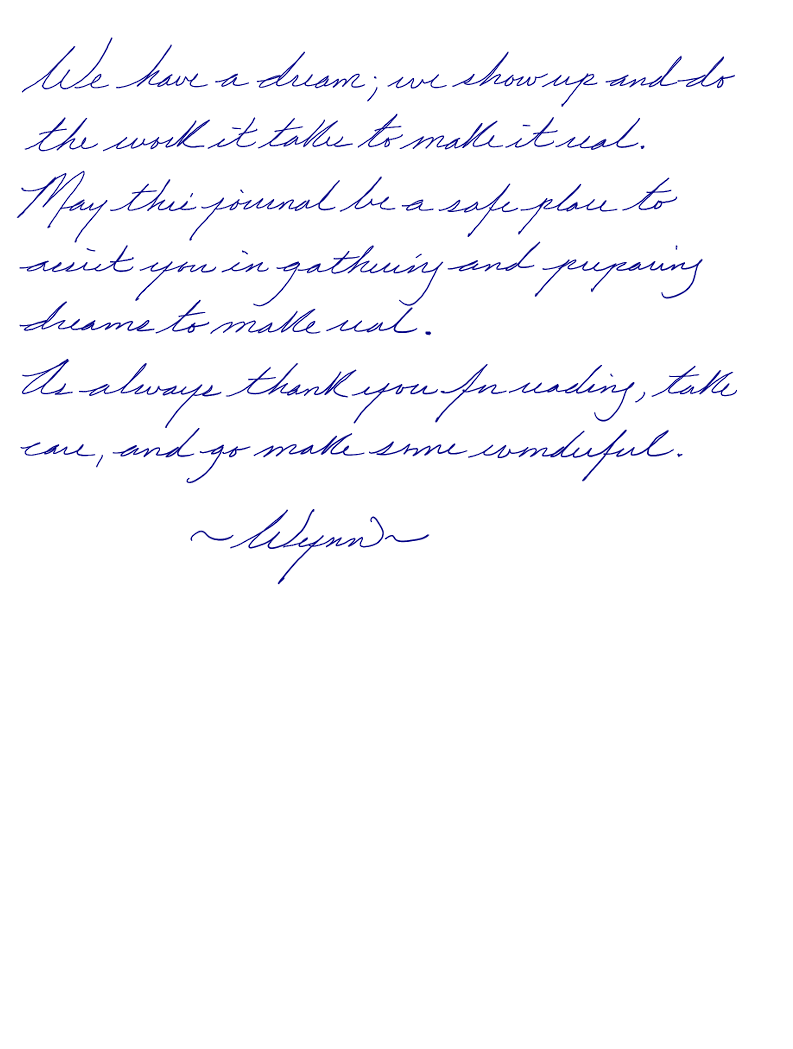 We have a dream; we show up and do
the work it takes to make it real.
May this journal be a safe place to
assist you in gathering and preparing
dreams to make real.
As always thank you for reading, take
care, and go make some wonderful.
~Wynn~